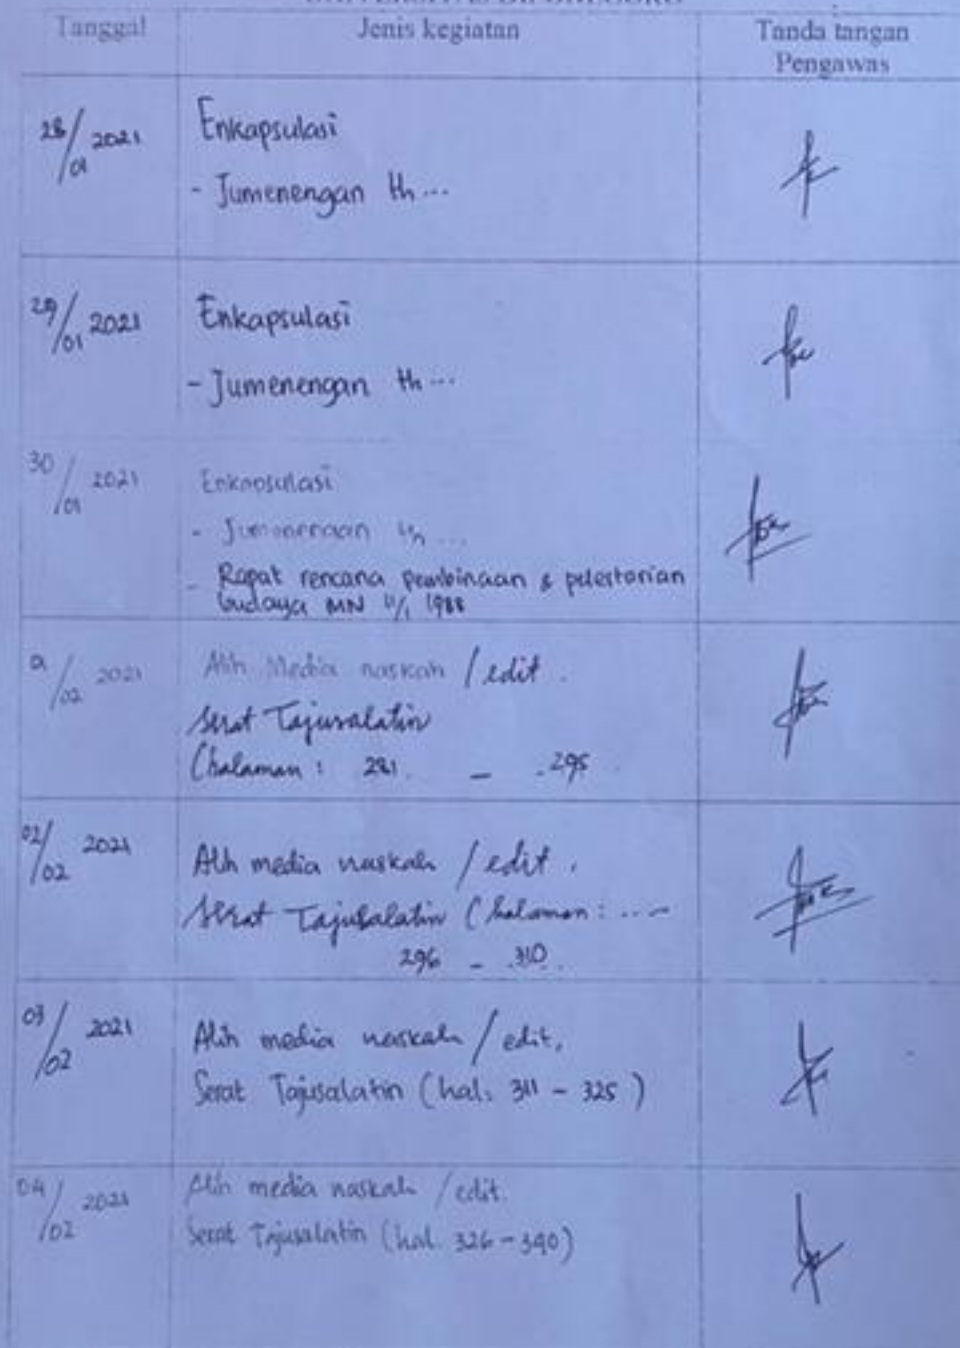 Tanggal Jenis kegiatan Tanda tangan
Pengawas
28/01 2021 Enkapsulasi
- Jumenengan th ...
29/01 2021 Enkapsulasi
- Jumenengan th ...
30/01 2021 Enkapsulasi
- Jumenengan th ...
- Rapat rencana pembinaan & pelestarian
budaya MN 11/1 1988
01/02 2021 Alih Media naskah / edit.
Serat Tajusalatin
(halaman : 281. - 295
02/02 2021 Alih media naskah / edit.
Serat Tajusalatin (halaman : ...
296 - 310.
03/02 2021 Alih media naskah / edit.
Serat Tajusalatin (hal. 311 - 325)
04/02 2021 Alih media naskah / edit.
Serat Tajusalatin (hal. 326 - 340)